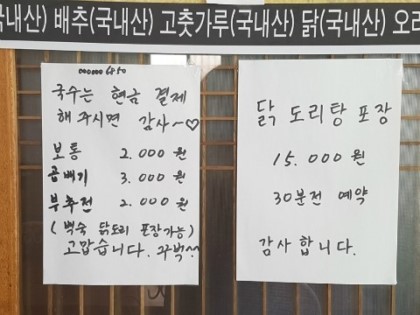 국내산) 배추(국내산) 고춧가루(국내산) 닭(국내산) 오리
국수는 현금 결제
해 주시면 감사~♡
보통 2.000원
곱빼기 3.000원
부추전 2.000원
(백숙 닭도리 포장가능)
고맙습니다. 꾸벅~
닭 도리탕 포장
15.000원
30분전 예약
감사 합니다.